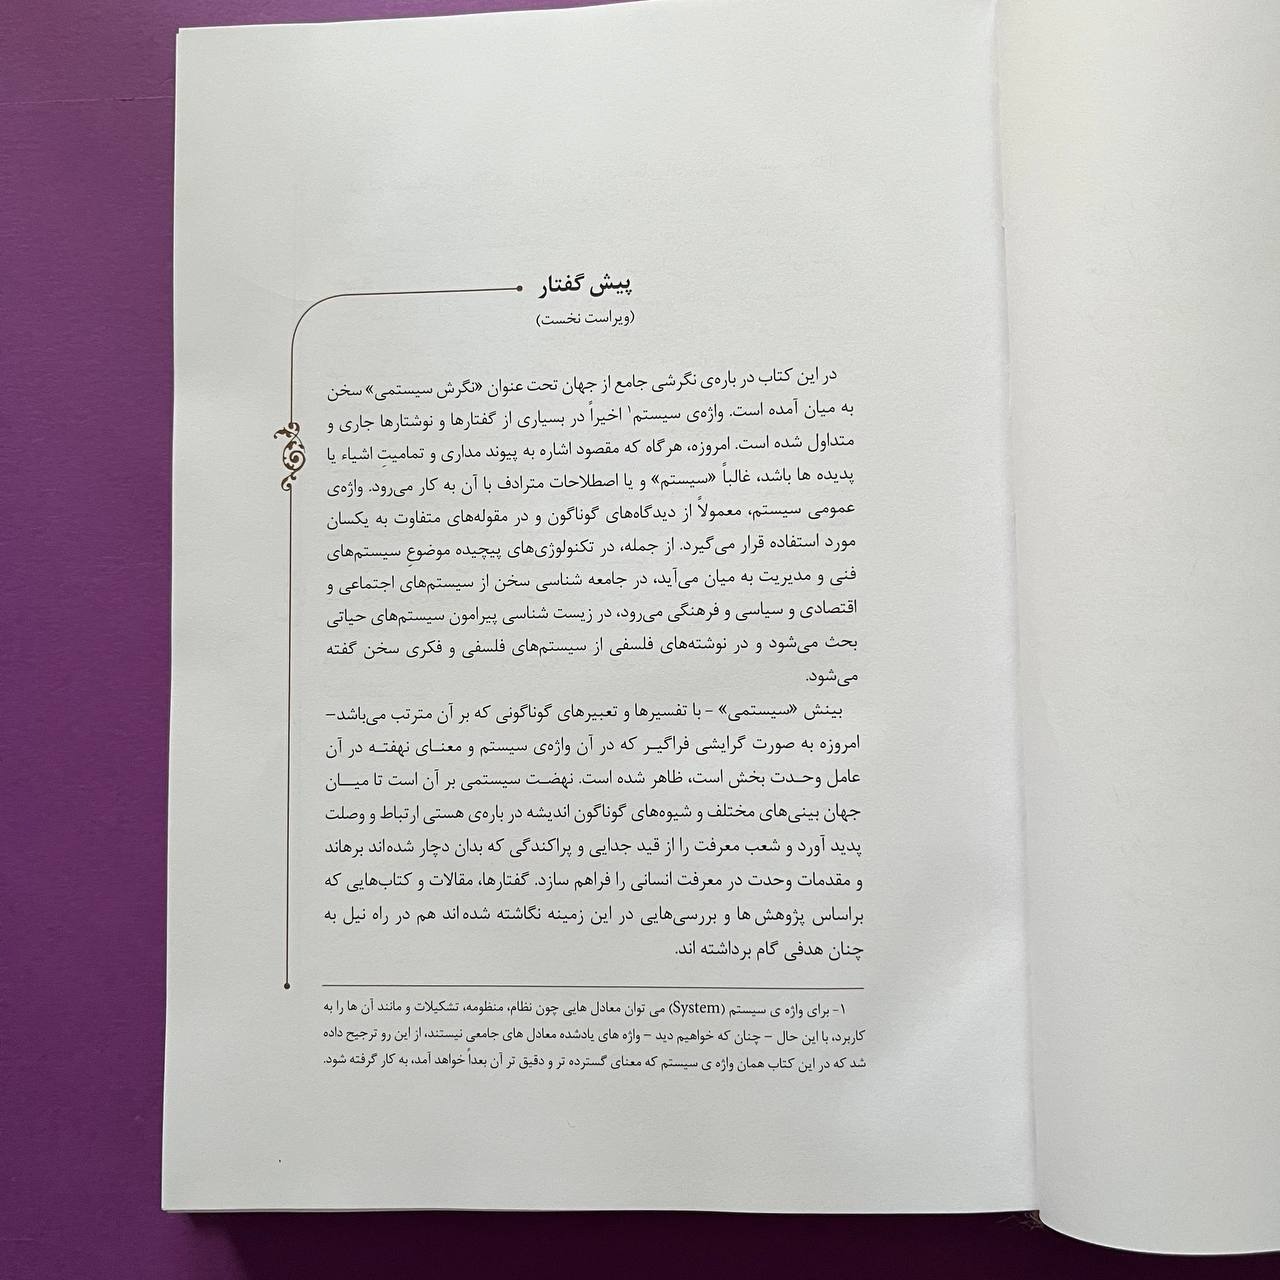 پیش گفتار
(ویراست نخست)
در این کتاب در باره‌ی نگرشی جامع از جهان تحت عنوان «نگرش سیستمی» سخن
به میان آمده است. واژه‌ی سیستم۱ اخیراً در بسیاری از گفتارها و نوشتارها جاری و
متداول شده است. امروزه، هرگاه که مقصود اشاره به پیوند مداری و تمامیتِ اشیاء یا
پدیده ها باشد، غالباً «سیستم» و یا اصطلاحات مترادف با آن به کار می‌رود. واژه‌ی
عمومی سیستم، معمولاً از دیدگاه‌های گوناگون و در مقوله‌های متفاوت به یکسان
مورد استفاده قرار می‌گیرد. از جمله، در تکنولوژی‌های پیچیده موضوعِ سیستم‌های
فنی و مدیریت به میان می‌آید، در جامعه شناسی سخن از سیستم‌های اجتماعی و
اقتصادی و سیاسی و فرهنگی می‌رود، در زیست شناسی پیرامون سیستم‌های حیاتی
بحث می‌شود و در نوشته‌های فلسفی از سیستم‌های فلسفی و فکری سخن گفته
می‌شود.
بینش «سیستمی» - با تفسیرها و تعبیرهای گوناگونی که بر آن مترتب می‌باشد–
امروزه به صورت گرایشی فراگیـر که در آن واژه‌ی سیستم و معنـای نهفتـه در آن
عامل وحـدت بخش است، ظاهر شده است. نهضـت سیستمی بر آن است تا میـــان
جهان بینی‌های مختلف و شیوه‌های گوناگون اندیشه در باره‌ی هستی ارتباط و وصلت
پدید آورد و شعب معرفت را از قید جدایی و پراکندگی که بدان دچار شده‌اند برهاند
و مقدمات وحدت در معرفت انسانی را فراهم سازد. گفتارها، مقالات و کتاب‌هایی که
براساس پژوهش ها و بررسی‌هایی در این زمینه نگاشته شده‌اند هم در راه نیل به
چنان هدفی گام برداشته اند.
۱- برای واژه ی سیستم (System) می توان معادل هایی چون نظام، منظومه، تشکیلات و مانند آن ها را به
کاربرد، با این حال – چنان که خواهیم دید – واژه های یادشده معادل های جامعی نیستند، از این رو ترجیح داده
شد که در این کتاب همان واژه ی سیستم که معنای گسترده تر و دقیق تر آن بعداً خواهد آمد، به کار گرفته شود.